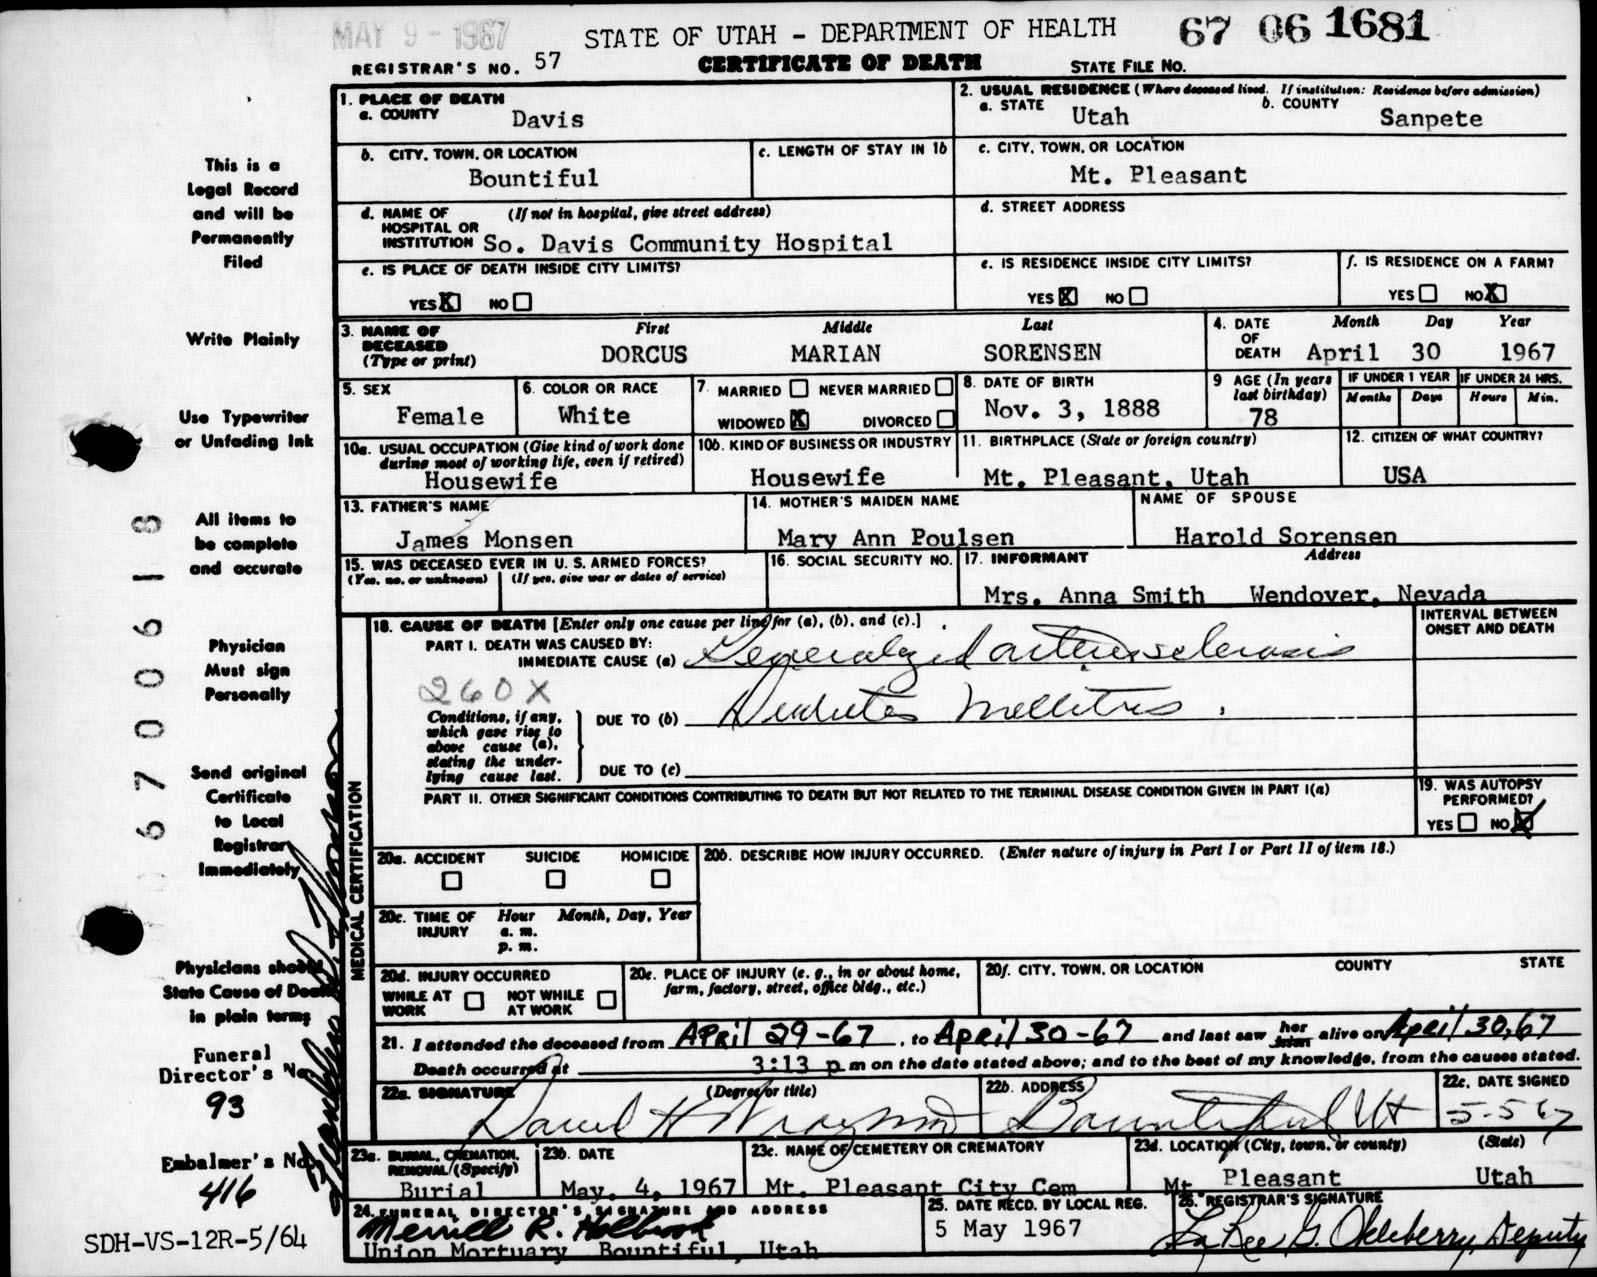 MAY 9 - 1967
STATE OF UTAH - DEPARTMENT OF HEALTH
67 06 1681
REGISTRAR'S NO. 57
CERTIFICATE OF DEATH
STATE FILE NO.
1. PLACE OF DEATH
a. COUNTY Davis
2. USUAL RESIDENCE (Where deceased lived. If institution: Residence before admission)
a. STATE Utah b. COUNTY Sanpete
b. CITY, TOWN, OR LOCATION Bountiful
c. LENGTH OF STAY IN 1b
c. CITY, TOWN, OR LOCATION Mt. Pleasant
d. NAME OF HOSPITAL OR INSTITUTION (If not in hospital, give street address)
So. Davis Community Hospital
d. STREET ADDRESS
e. IS PLACE OF DEATH INSIDE CITY LIMITS?
YES X NO
e. IS RESIDENCE INSIDE CITY LIMITS?
YES X NO
f. IS RESIDENCE ON A FARM?
YES NO X
3. NAME OF DECEASED (Type or print)
First Middle Last
DORCUS MARIAN SORENSEN
4. DATE OF DEATH
Month Day Year
April 30 1967
5. SEX Female
6. COLOR OR RACE White
7. MARRIED NEVER MARRIED
WIDOWED X DIVORCED
8. DATE OF BIRTH Nov. 3, 1888
9 AGE (In years last birthday) 78
IF UNDER 1 YEAR Months Days
IF UNDER 24 HRS. Hours Min.
10a. USUAL OCCUPATION (Give kind of work done during most of working life, even if retired)
Housewife
10b. KIND OF BUSINESS OR INDUSTRY
Housewife
11. BIRTHPLACE (State or foreign country)
Mt. Pleasant, Utah
12. CITIZEN OF WHAT COUNTRY?
USA
13. FATHER'S NAME
James Monsen
14. MOTHER'S MAIDEN NAME
Mary Ann Poulsen
NAME OF SPOUSE
Harold Sorensen
15. WAS DECEASED EVER IN U. S. ARMED FORCES?
(Yes, no, or unknown) (If yes, give war or dates of service)
16. SOCIAL SECURITY NO.
17. INFORMANT Address
Mrs. Anna Smith Wendover, Nevada
18. CAUSE OF DEATH [Enter only one cause per line for (a), (b), and (c).]
INTERVAL BETWEEN ONSET AND DEATH
PART I. DEATH WAS CAUSED BY:
IMMEDIATE CAUSE (a) Generalized arteriosclerosis
260X
Conditions, if any, which gave rise to above cause (a), stating the underlying cause last.
DUE TO (b) Diabetes Mellitus.
DUE TO (c)
PART II. OTHER SIGNIFICANT CONDITIONS CONTRIBUTING TO DEATH BUT NOT RELATED TO THE TERMINAL DISEASE CONDITION GIVEN IN PART I(a)
19. WAS AUTOPSY PERFORMED?
YES NO X
MEDICAL CERTIFICATION
20a. ACCIDENT SUICIDE HOMICIDE
20b. DESCRIBE HOW INJURY OCCURRED. (Enter nature of injury in Part I or Part II of item 18.)
20c. TIME OF INJURY Hour a. m. p. m. Month, Day, Year
20d. INJURY OCCURRED
WHILE AT WORK NOT WHILE AT WORK
20e. PLACE OF INJURY (e. g., in or about home, farm, factory, street, office bldg., etc.)
20f. CITY, TOWN, OR LOCATION COUNTY STATE
21. I attended the deceased from April 29-67, to April 30-67 and last saw her him alive on April 30, 67
Death occurred at 3:13 p m on the date stated above; and to the best of my knowledge, from the causes stated.
22a. SIGNATURE (Degree or title)
22b. ADDRESS Bountiful Ut
22c. DATE SIGNED 5-5 67
23a. BURIAL, CREMATION, REMOVAL (Specify)
Burial
23b. DATE
May. 4, 1967
23c. NAME OF CEMETERY OR CREMATORY
Mt. Pleasant City Cem
23d. LOCATION (City, town, or county) (State)
Mt Pleasant Utah
24. FUNERAL DIRECTOR'S SIGNATURE AND ADDRESS
Merrill R. Holbrook
Union Mortuary Bountiful, Utah
25. DATE RECD. BY LOCAL REG.
5 May 1967
26. REGISTRAR'S SIGNATURE
LaRee G. Okleberry, Deputy
This is a
Legal Record
and will be
Permanently
Filed
Write Plainly
Use Typewriter
or Unfading Ink
All items to
be complete
and accurate
Physician
Must sign
Personally
Send original
Certificate
to Local
Registrar
Immediately
Physicians should
State Cause of Death
in plain terms
Funeral
Director's No
93
Embalmer's No.
416
SDH-VS-12R-5/64
0 6 7 0 0 6 1 8